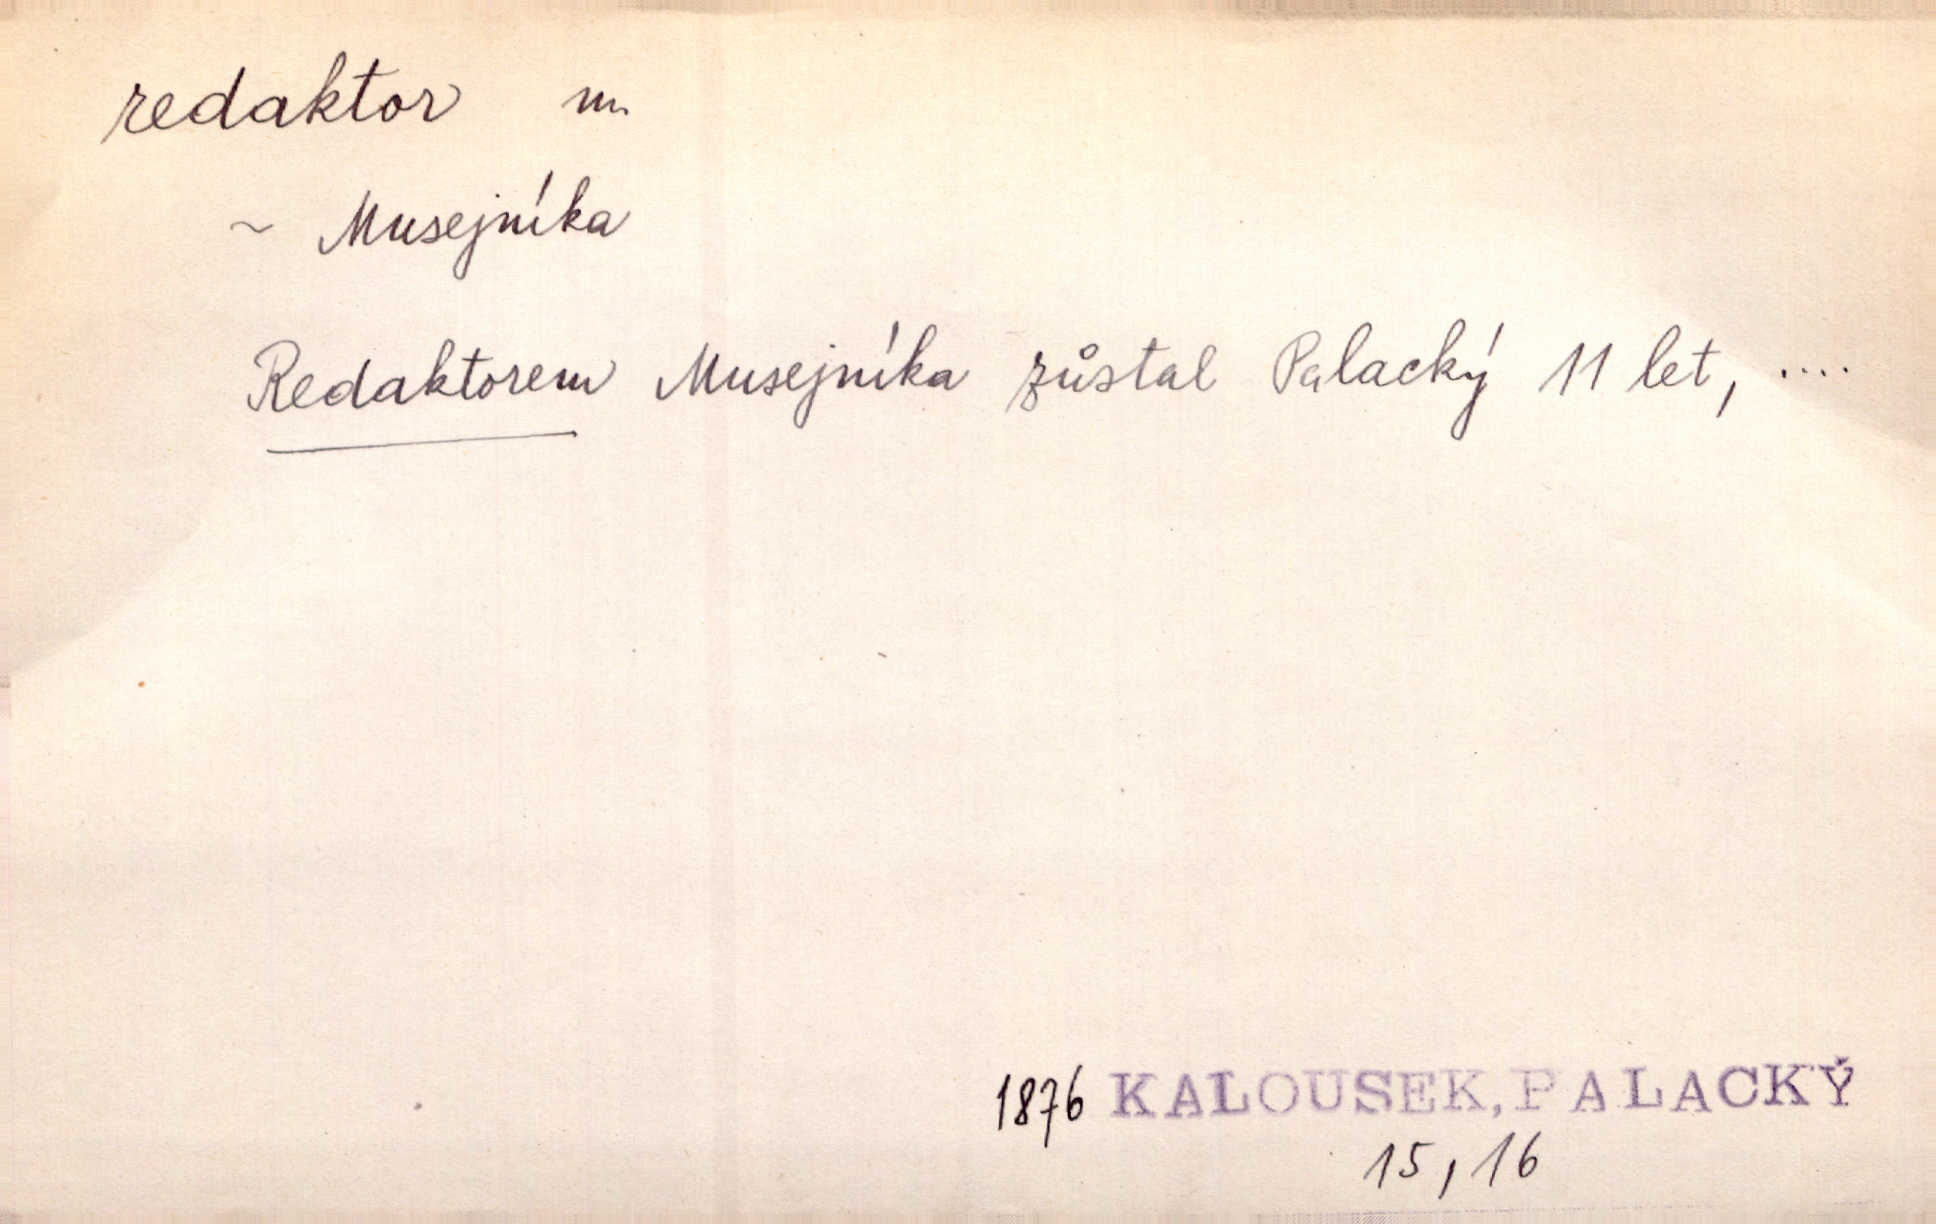 redaktor m.
~ Musejníka
Redaktorem Musejníka zůstal Palacký 11 let, ....
1876 KALOUSEK, PALACKÝ
15, 16